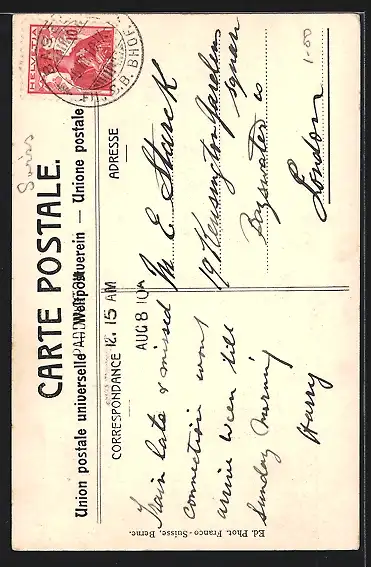 Suiss
CARTE POSTALE.
Union postale universelle – Weltpostverein – Unione postale
CORRESPONDANCE
ADRESSE
HELVETIA
10
B. BHOF.
PADDINGTON
12. 15 AM
AUG 8 10
1-00
Train late & missed
connection wont
arrive Ween till
Sunday morning
Harry
M E Starck
19 Kensington Gardens
Square
Bayswater
London
Ed. Phot. Franco-Suisse, Berne.